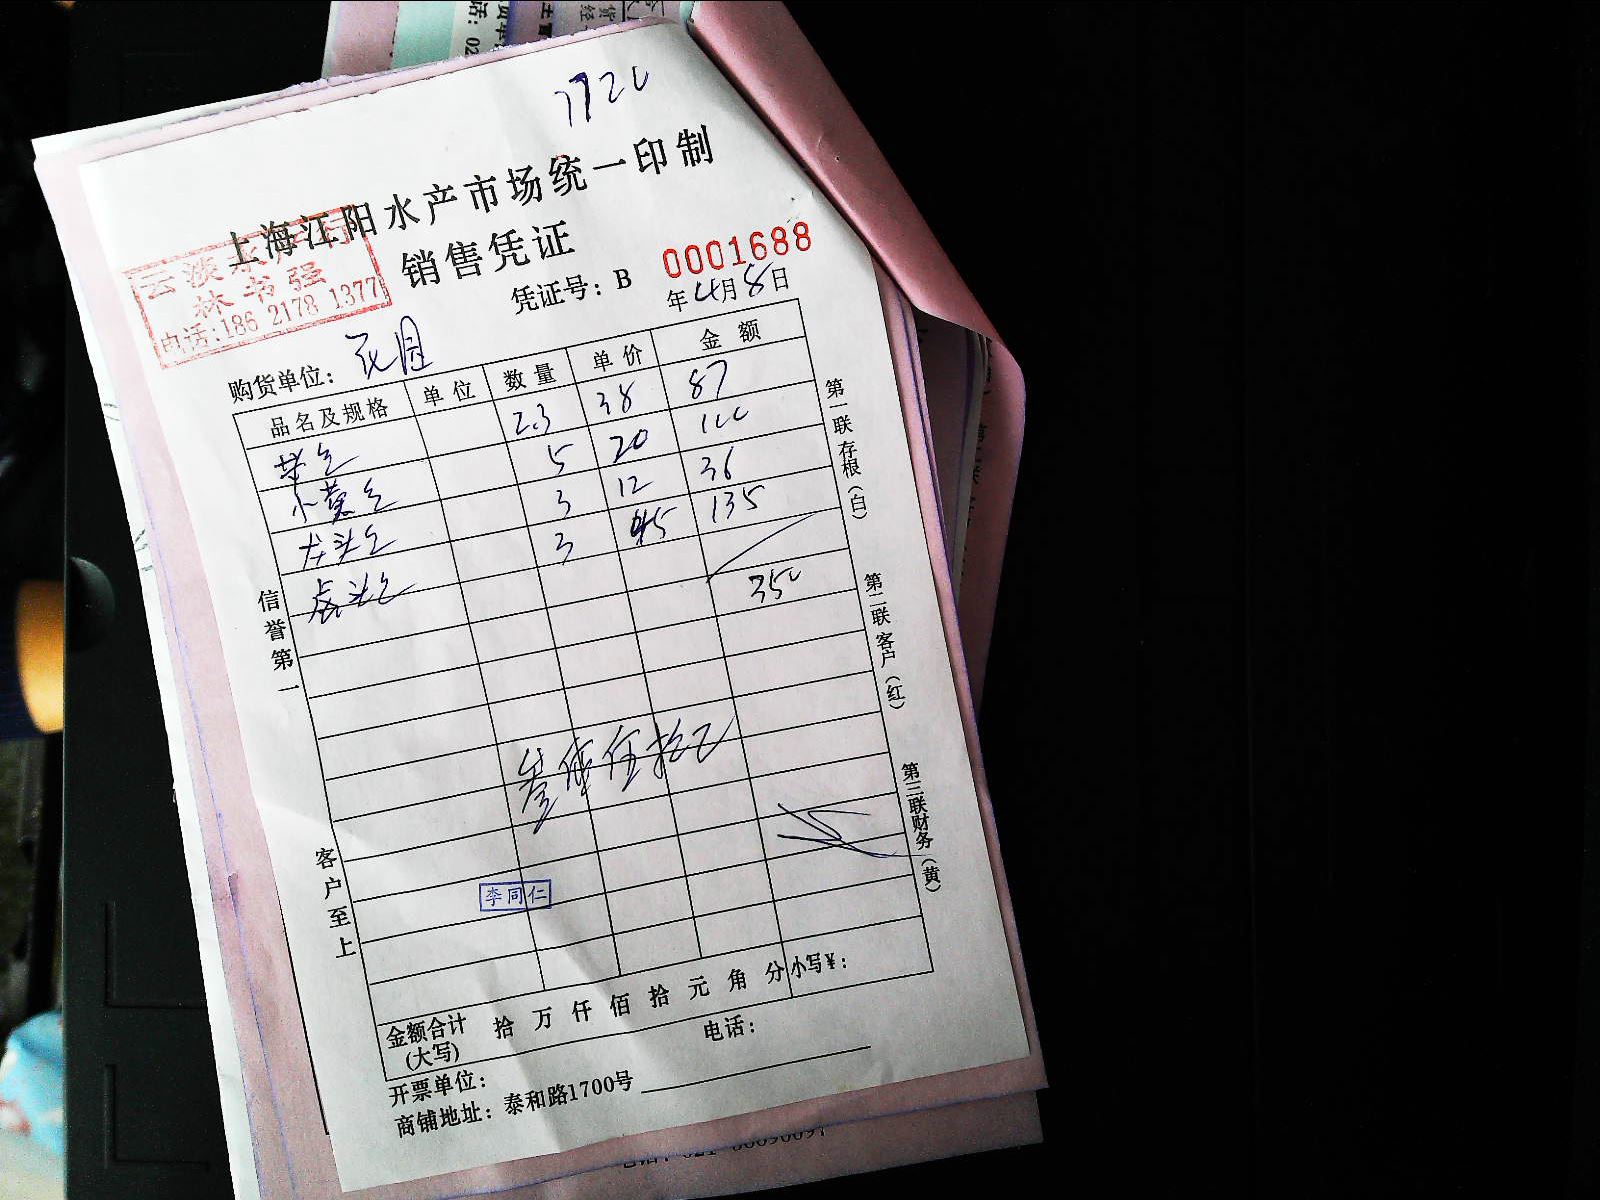 7720
上海江阳水产市场统一印制
销售凭证
云淡水产行
林书强
电话:186 2178 1377
凭证号: B 0001688
年4月8日
购货单位: 花园
品名及规格 单位 数量 单价 金额
2.3 38 87
小黄鱼 5 20 100
龙头鱼 3 12 36
3 45 135
350
叁佰伍拾元
李同仁
信誉第一
客户至上
第一联存根(白)
第二联客户(红)
第三联财务(黄)
金额合计(大写) 拾 万 仟 佰 拾 元 角 分 小写¥:
开票单位: 电话:
商铺地址: 泰和路1700号